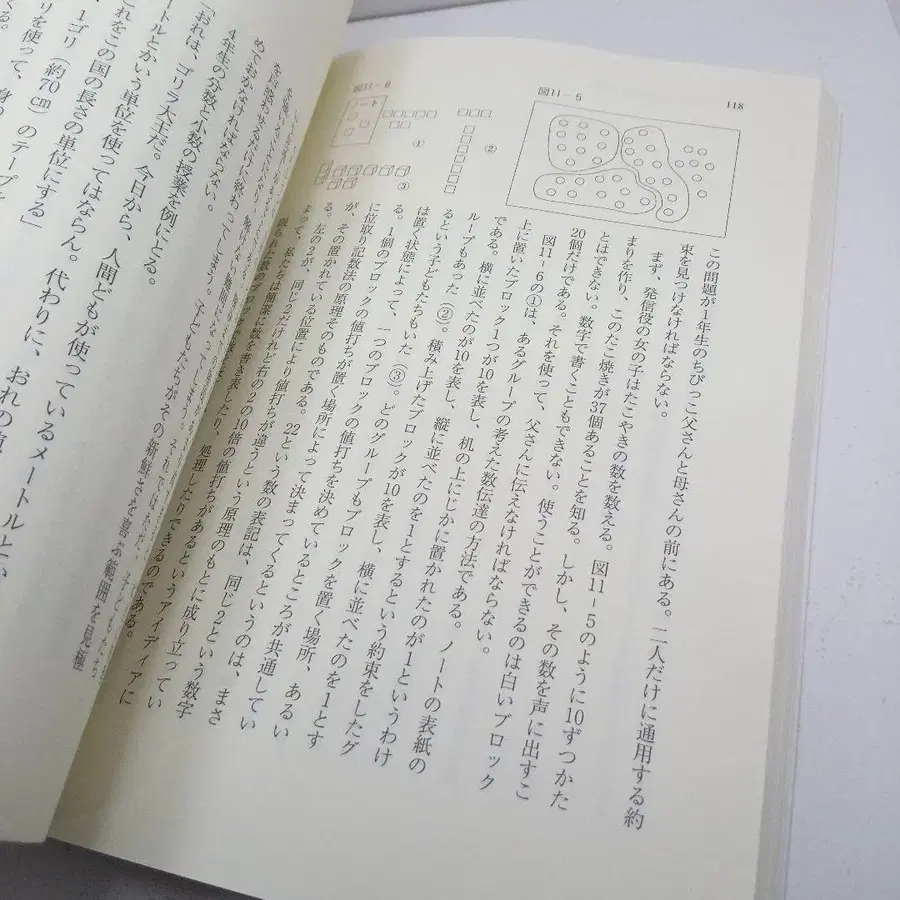 118
図11-5
図11-6
ノート
①
②
③
この問題が1年生のちびっこ父さんと母さんの前にある。二人だけに通用する約
束を見つけなければならない。
まず、発信役の女の子はたこやきの数を数える。図11-5のように10ずつかた
まりを作り、このたこ焼きが37個あることを知る。しかし、その数を声に出すこ
とはできない。数字で書くこともできない。使うことができるのは白いブロック
20個だけである。それを使って、父さんに伝えなければならない。
図11-6の①は、あるグループの考えた数伝達の方法である。ノートの表紙の
上に置いたブロック1つが10を表し、机の上にじかに置かれたのが1というわけ
である。横に並べたのが10を表し、縦に並べたのを1とするという約束をしたグ
ループもあった(②)。積み上げたブロックが10を表し、横に並べたのを1とす
るという子どもたちもいた(③)。どのグループもブロックを置く場所、あるい
は置く状態によって、一つのブロックの値打ちを決めているところが共通してい
る。1個のブロックの値打ちが置く場所によって決まってくるというのは、まさ
に位取り記数法の原理そのものである。22という数の表記は、同じ2という数字
が、その置かれている位置により値打ちが違うという原理のもとに成り立ってい
る。左の2が、同じ2だけれど右の2の10倍の値打ちがあるというアイディアに
よって、私たちは簡潔に数を書き表したり、処理したりできるのである。
限られた数のブロック
子どもたちがその新鮮さを喜ぶ範囲を見極
めておかなければならない。
4年生の分数と小数の授業を例にとる。
「おれは、ゴリラ大王だ。今日から、人間どもが使っているメートルとい
ートルとかいう単位を使ってはならん。代わりに、おれの
これをこの国の長さの単位にする」
1ゴリ(約70㎝)のテープ
リを使って、身の
くる。